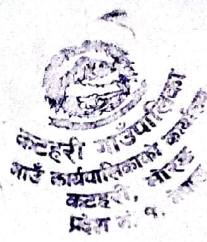 कटहरी गाउँपालिका
गाउँ कार्यपालिकाको कार्यालय
कटहरी, मोरङ
प्रदेश नं.